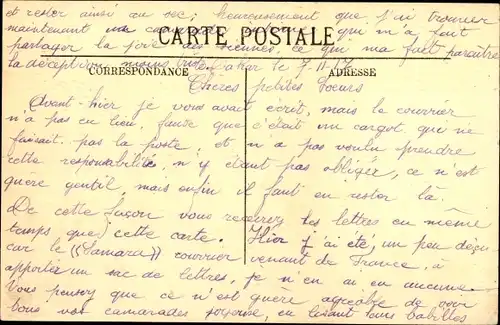 et rester ainsi au sec, heureusement que j'ai trouver
maintenant un camarade qui m'a fait
partager la joie des siennes, ce qui m'a fait paraître
la déception moins rude
CARTE POSTALE
CORRESPONDANCE
ADRESSE
Dakar le 7.11.17
Chères petites Soeurs
Avant-hier je vous avait écrit, mais le courrier
n'a pas eu lieu, faute que c'était un cargot qui ne
faisait pas la poste, et n'a pas voulu prendre
cette responsabilité, n'y étant pas obligée, ce n'est
guère gentil, mais enfin il faut en rester là.
De cette façon vous recevrez les lettres en même
temps que cette carte. Hier j'ai été un peu déçu
car le ((Samara)) courrier venant de France, à
apporter un sac de lettres, je n'en ai eu aucune.
Vous pensez que ce n'est guère agréable de voir
tous vos camarades joyeuse, en lisant leurs babilles